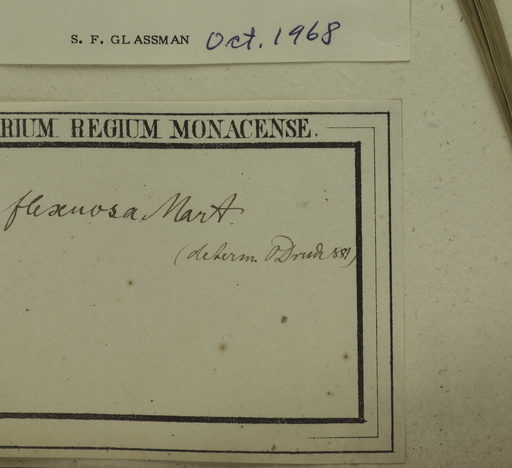 S. F. GLASSMAN Oct. 1968
RIUM REGIUM MONACENSE.
flexuosa Mart.
(determ. O Drude 881)